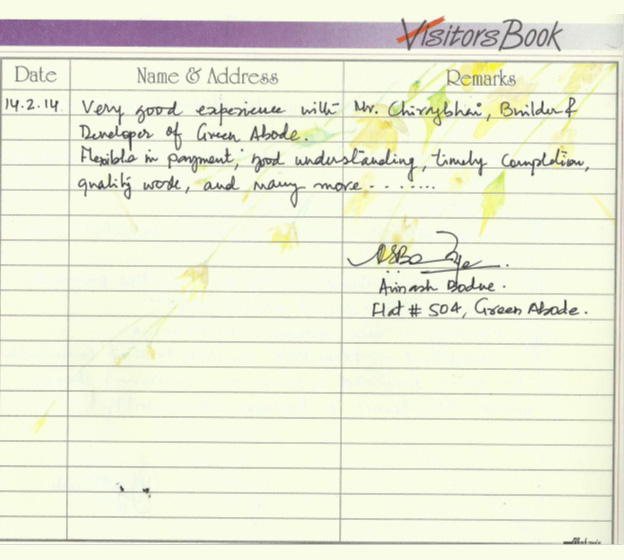 VisitorsBook
Date Name & Address Remarks
14.2.14 Very good experience with Mr. Chiragbhai, Builder &
Developer of Green Abode.
Flexible in payment, good understanding, timely completion,
quality work, and many more........
Avinash Bodne.
Flat # 504, Green Abode.